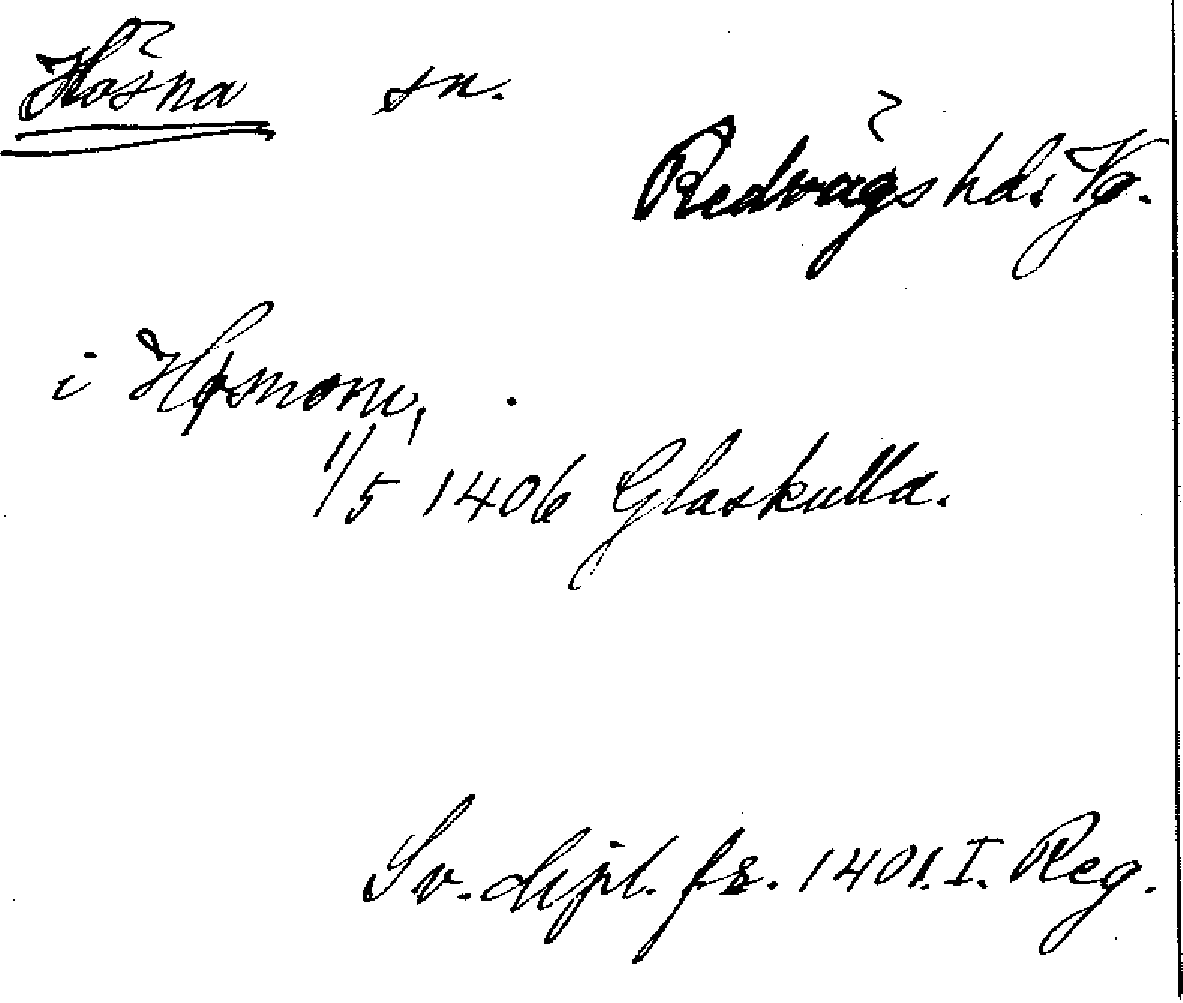 Hösna sn.
Redvägs hd. Vg.
i Høsnom,
1/5 1406 Glaskulla.
Sv. dipl. fr. 1401. I. Reg.